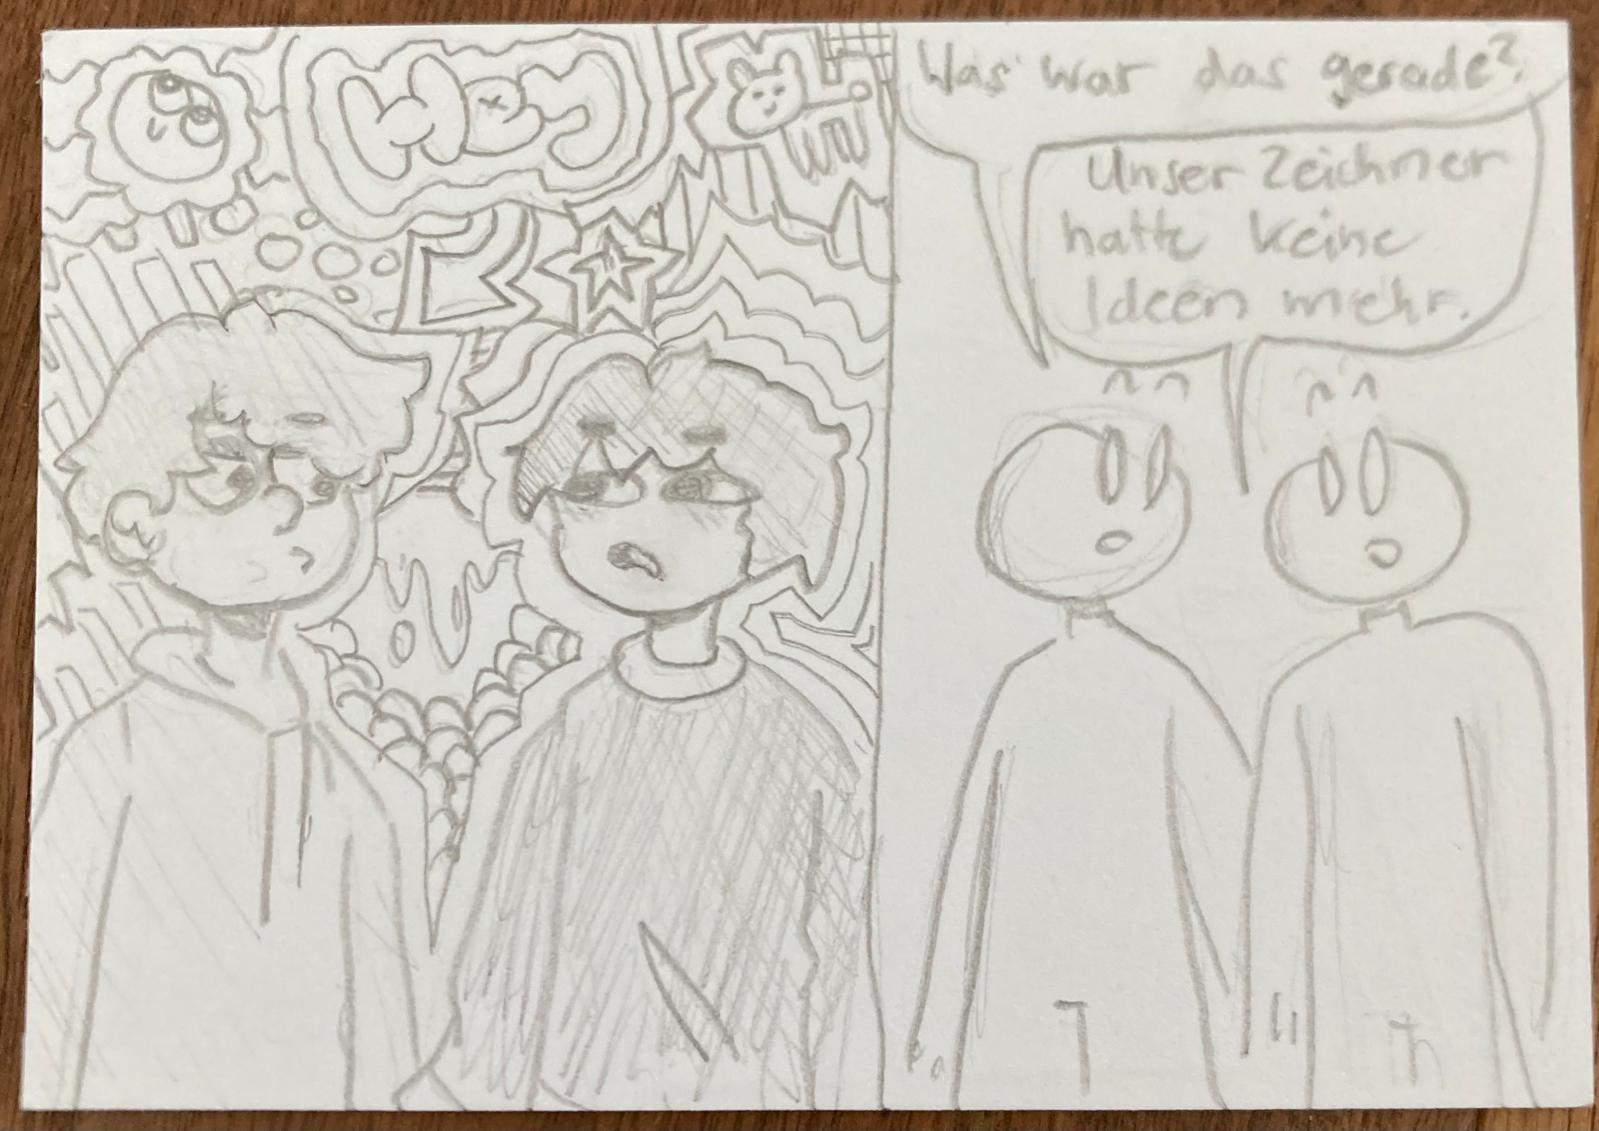 Hey
Was war das gerade?
Unser Zeichner
hatte keine
Ideen mehr.